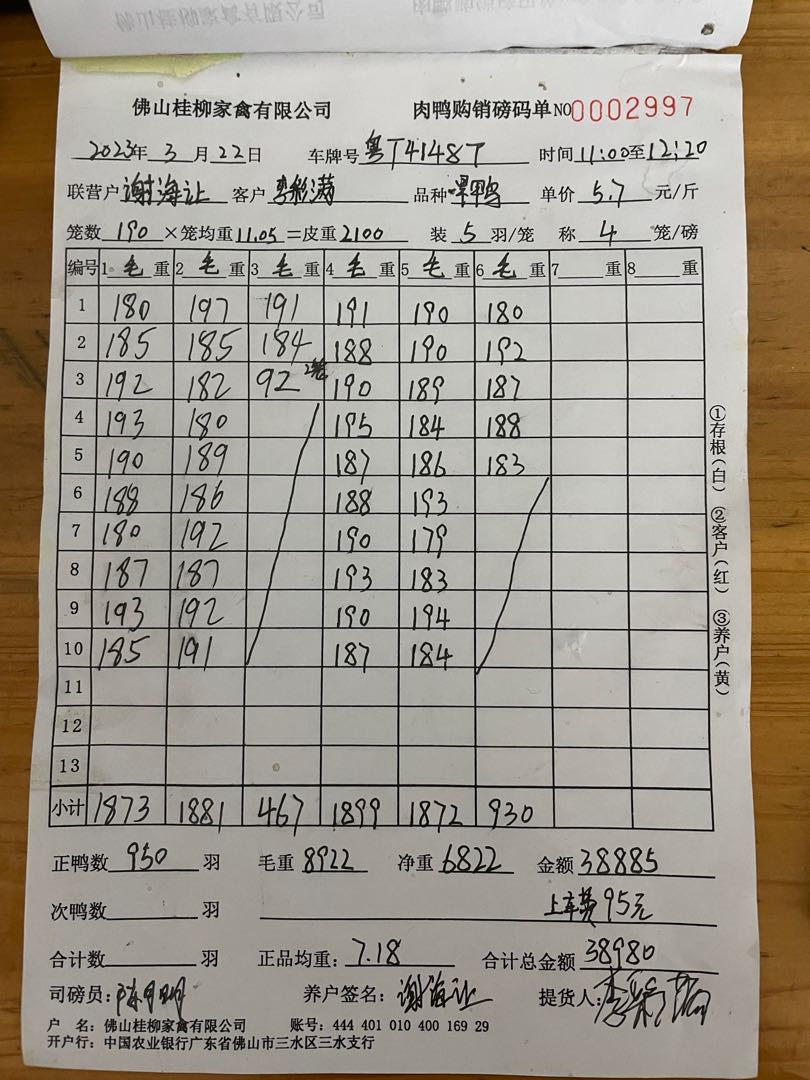 佛山桂柳家禽有限公司 肉鸭购销磅码单 NO 0002997
2023年 3 月 22日 车牌号 粤T41487 时间 11:00至12:20
联营户 谢海让 客户 李彩满 品种 单价 5.7 元/斤
笼数 190 ×笼均重 11.05 =皮重 2100 装 5 羽/笼 称 4 笼/磅
编号 1 毛 重 2 毛 重 3 毛 重 4 毛 重 5 毛 重 6 毛 重 7 重 8 重
1 180 197 191 191 190 180
2 185 185 184 188 190 192
3 192 182 92 2笼 190 189 187
4 193 180 195 184 188
5 190 189 187 186 183
6 188 186 188 193
7 180 192 190 179
8 187 187 193 183
9 193 192 190 194
10 185 191 187 184
11
12
13
小计 1873 1881 467 1899 1872 930
正鸭数 950 羽 毛重 8922 净重 6822 金额 38885
次鸭数 羽 上车费95元
合计数 羽 正品均重: 7.18 合计总金额 38980
司磅员: 养户签名: 谢海让 提货人: 李彩满
户 名: 佛山桂柳家禽有限公司 账号: 444 401 010 400 169 29
开户行: 中国农业银行广东省佛山市三水区三水支行
①存根(白) ②客户(红) ③养户(黄)